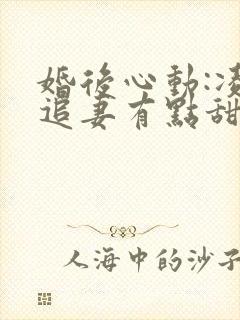 婚後心動:凌
追妻有點甜
人海中的沙子